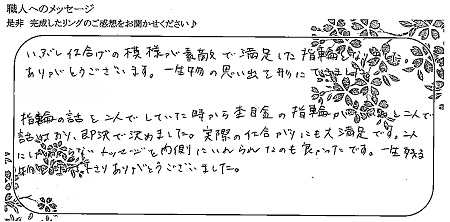 職人へのメッセージ
是非 完成したリングのご感想をお聞かせください♪
いぶし仕上げの模様が素敵で満足した指輪となり
ありがとうございます。一生物の思い出で形にできました
指輪の話を二人でしていた時から杢目金の指輪が と二人で
話 おり、即決で決めました。実際の仕上がりにも大満足です。二人
にし ないメッセージを内側にいれられたのも良かったです。一生残る
さりありがとうございました。